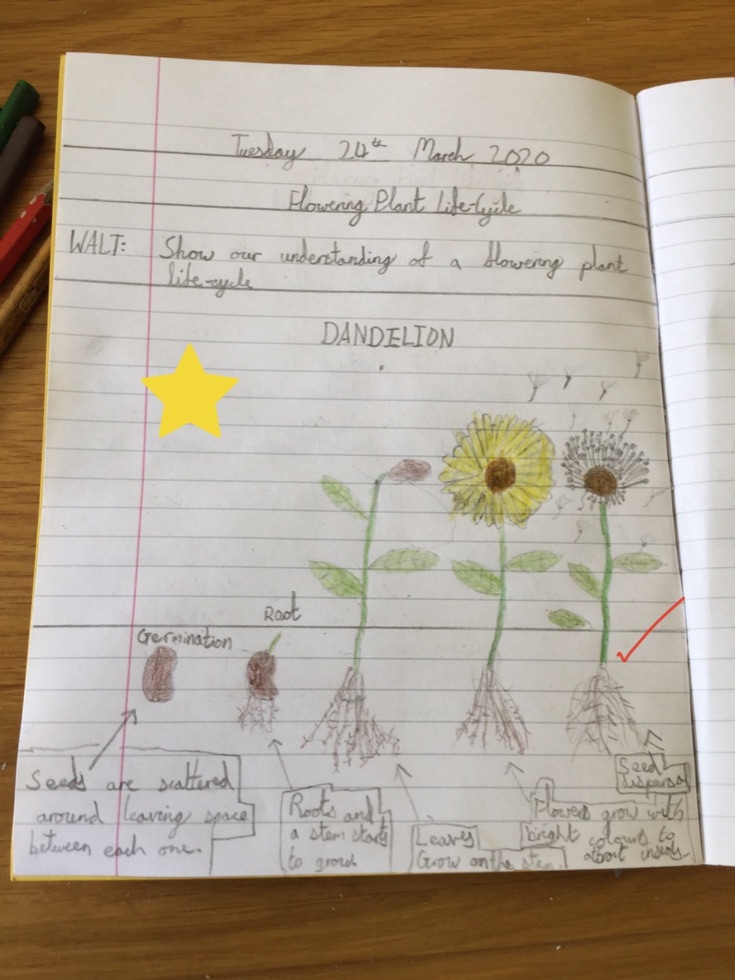 Tuesday 24th March 2020
Flowering Plant Life-Cycle
WALT: Show our understanding of a flowering plant
life-cycle
DANDELION
Root
Germination
Seeds are scattered
around leaving space
between each one.
Roots and
a stem starts
to grow
Leaves
Grow on the stem
Flowers grow with
bright colours to
attract insects
Seed
dispersal